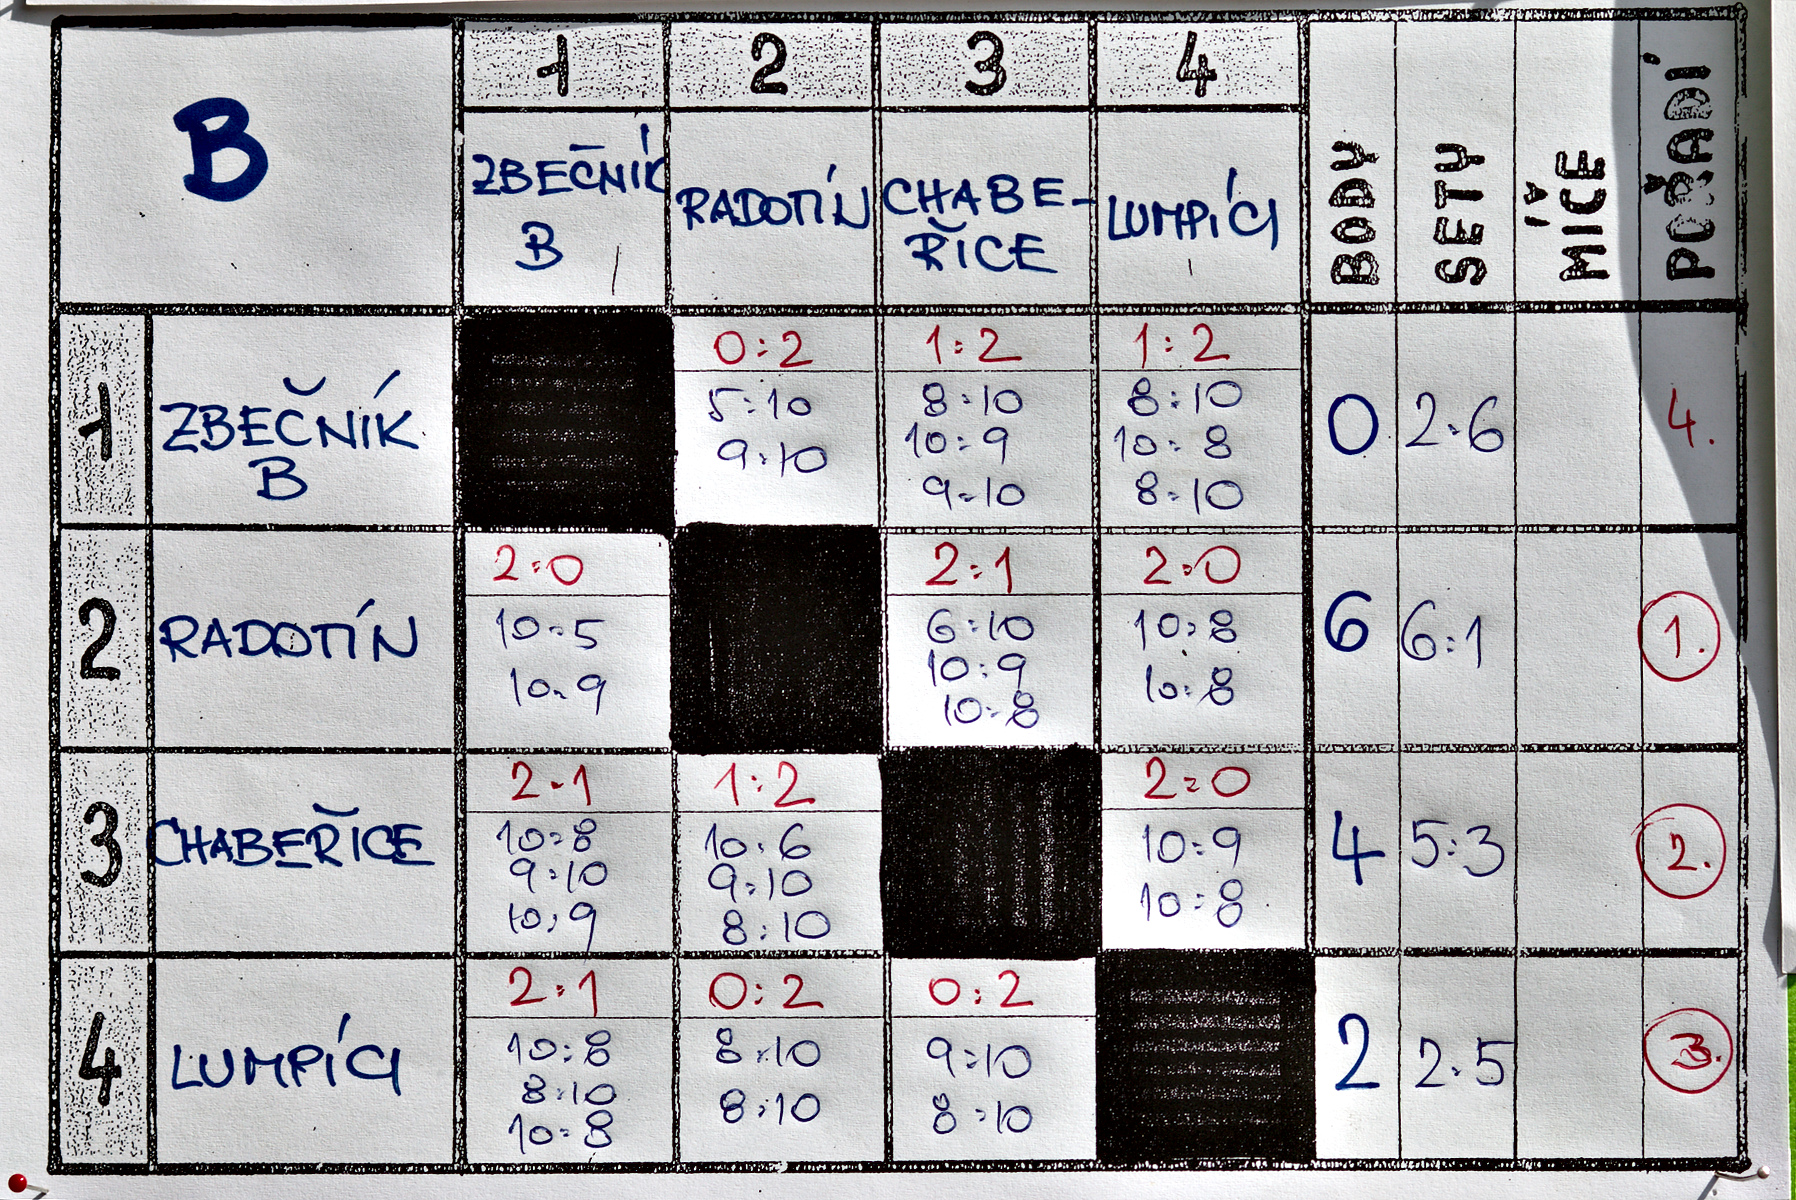 B
1 2 3 4
ZBEČNÍK
B
RADOTÍN
CHABE-
ŘICE
LUMPÍCI
BODY
SETY
MÍČE
POŘADÍ
1
ZBEČNÍK
B
0:2
5:10
9:10
1:2
8:10
10:9
9:10
1:2
8:10
10:8
8:10
0
2:6
4.
2
RADOTÍN
2:0
10:5
10:9
2:1
6:10
10:9
10:8
2:0
10:8
10:8
6
6:1
1.
3
CHABEŘICE
2:1
10:8
9:10
10:9
1:2
10:6
9:10
8:10
2:0
10:9
10:8
4
5:3
2.
4
LUMPÍCI
2:1
10:8
8:10
10:8
0:2
8:10
8:10
0:2
9:10
8:10
2
2:5
3.